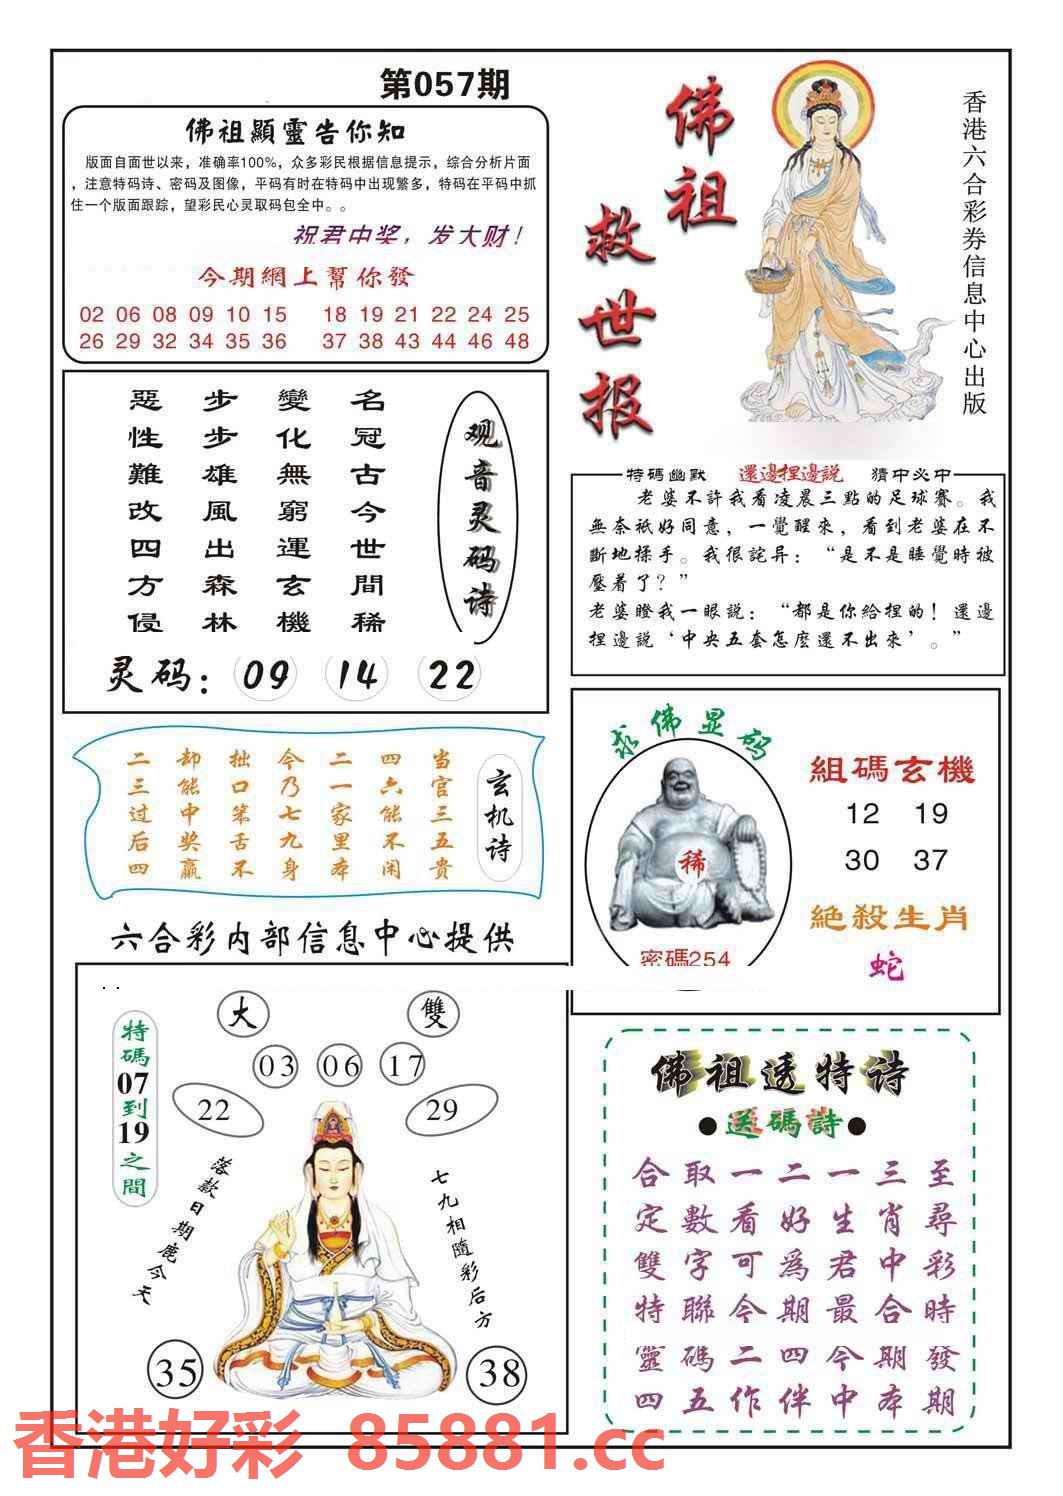 第057期
佛祖顯靈告你知
版面自面世以来，准确率100%，众多彩民根据信息提示，综合分析片面
，注意特码诗、密码及图像，平码有时在特码中出现繁多，特码在平码中抓
住一个版面跟踪，望彩民心灵取码包全中。。
祝君中奖，发大财！
今期網上幫你發
02 06 08 09 10 15 18 19 21 22 24 25
26 29 32 34 35 36 37 38 43 44 46 48
佛祖
救世报
香港六合彩券信息中心出版
观音灵码诗
名冠古今世間稀
變化無窮運玄機
步步雄風出森林
惡性難改四方侵
灵码：09 14 22
特碼幽默 還邊捏邊説 猜中必中
老婆不許我看凌晨三點的足球賽。我
無奈祇好同意，一覺醒來，看到老婆在不
斷地揉手。我很詫异：“是不是睡覺時被
壓着了？”
老婆瞪我一眼説：“都是你給捏的！還邊
捏邊説‘中央五套怎麽還不出來’。”
玄机诗
当官三五贵
四六能不闲
二一家里本
今乃七九身
拙口笨舌不
却能中奖赢
二三过后四
求佛显码
稀
密碼254
組碼玄機
12 19
30 37
絶殺生肖
蛇
六合彩内部信息中心提供
特碼07到19之間
大 雙
03 06 17
22 29
落款日期鹿今天
七九相隨彩后方
35 38
佛祖透特诗
●送碼詩●
合取一二一三至
定數看好生肖尋
雙字可爲君中彩
特聯今期最合時
靈碼二四今期發
四五作伴中本期
香港好彩 85881.cc